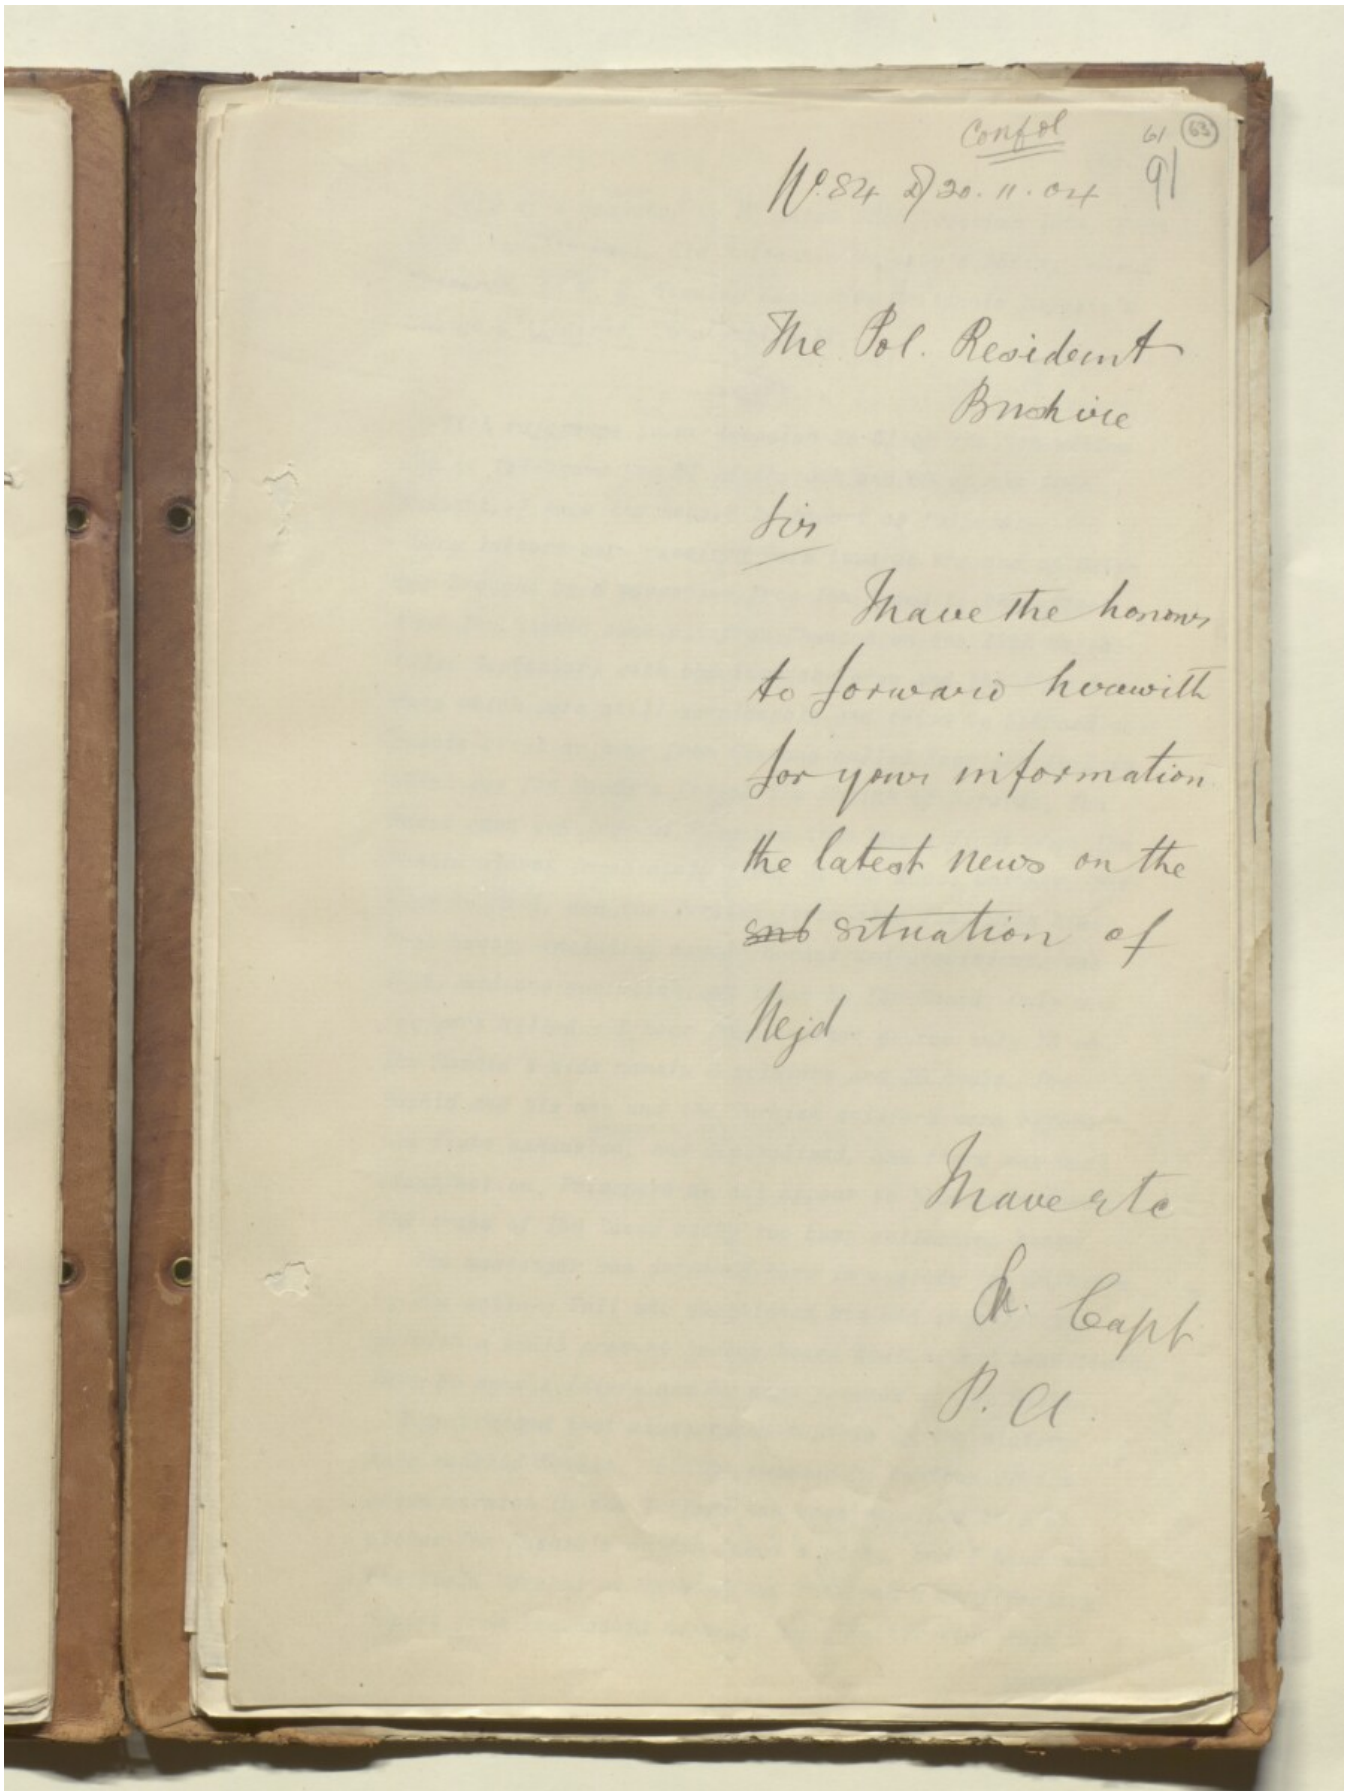 Confdl
61 63
No. 84 d/ 20.11.04 91
The Pol. Resident
Bushire
Sir
I have the honour
to forward herewith
for your information
the latest news on the
sub situation of
Nejd.
I have etc
K. Capt
P. A.